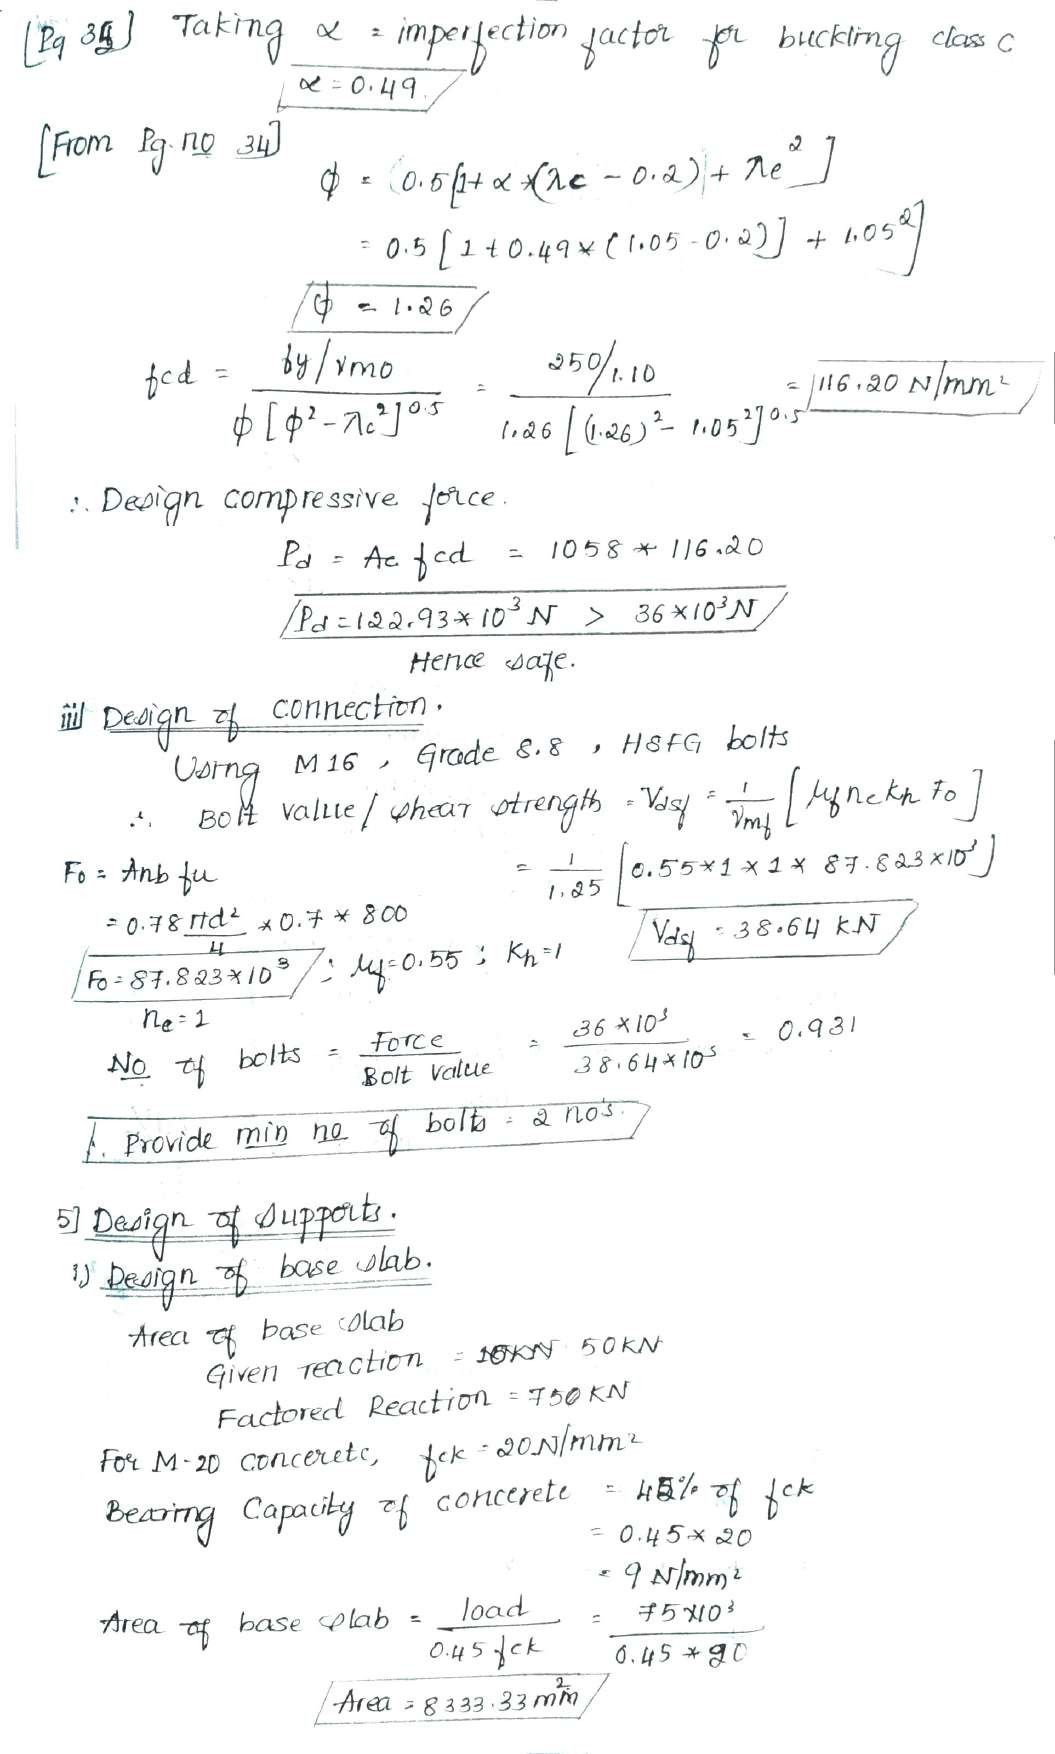 [Pg 35] Taking α = imperfection factor for buckling class c
α = 0.49
[From Pg. no 34]
φ = 0.5[1+ α*(λc - 0.2) + λe²]
= 0.5 [1 + 0.49 * (1.05 - 0.2)] + 1.05²]
φ = 1.26
fcd = by/γmo / φ[φ²-λc²]^0.5 = 250/1.10 / 1.26[(1.26)² - 1.05²]^0.5 = 116.20 N/mm²
∴ Design compressive force.
Pd = Ac fcd = 1058 * 116.20
Pd = 122.93*10³ N > 36*10³N
Hence safe.
iii] Design of connection.
Using M16, Grade 8.8, HSFG bolts
∴ Bolt value / shear strength = Vdsf = 1/γmf [μf ne Kh Fo]
Fo = Anb fu = 1/1.25 [0.55*1*1* 87.823×10³]
= 0.78 πd²/4 * 0.7 * 800
Vdsf = 38.64 KN
Fo = 87.823*10³ ; μf = 0.55 ; Kh = 1
ne = 1
No of bolts = Force / Bolt value = 36 * 10³ / 38.64*10³ = 0.931
∴ Provide min no of bolts = 2 no's.
5] Design of supports.
i) Design of base slab.
Area of base slab
Given reaction = 50KN
Factored Reaction = 750KN
For M-20 concerete, fck = 20N/mm²
Bearing Capacity of concerete = 45% of fck
= 0.45*20
= 9 N/mm²
Area of base slab = load / 0.45 fck = 75×10³ / 0.45 * 20
Area = 8333.33 mm²